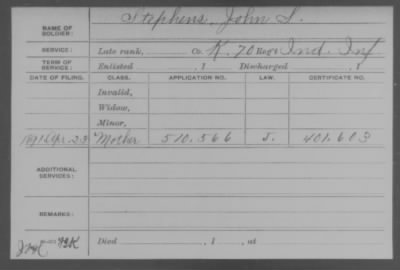 NAME OF SOLDIER: Stephens, John S.
SERVICE: Late rank, Co. K, 70 Reg't Ind. Inf
TERM OF SERVICE: Enlisted , 1 Discharged , 1
DATE OF FILING. CLASS. APPLICATION NO. LAW. CERTIFICATE NO.
Invalid,
Widow,
Minor,
1891 Apr. 23 Mother 510.566 J. 401.603
ADDITIONAL SERVICES:
REMARKS:
Died , 1 , at